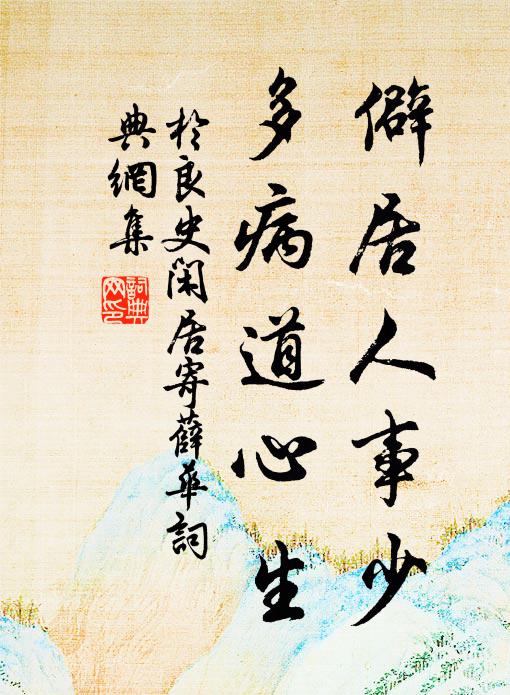 僻居人事少
多病道心生
於良史閑居寄薛華詞
典網集
詞典
网印